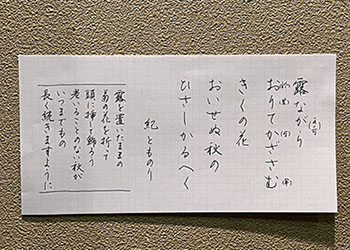 露ながら
おりてかざさむ
きくの花
おいせぬ秋の
ひさしかるへく
紀とものり
露を置いたままの
菊の花を折って
頭に挿して飾ろう
老いることのない秋が
いつまでもの
長く続きますように